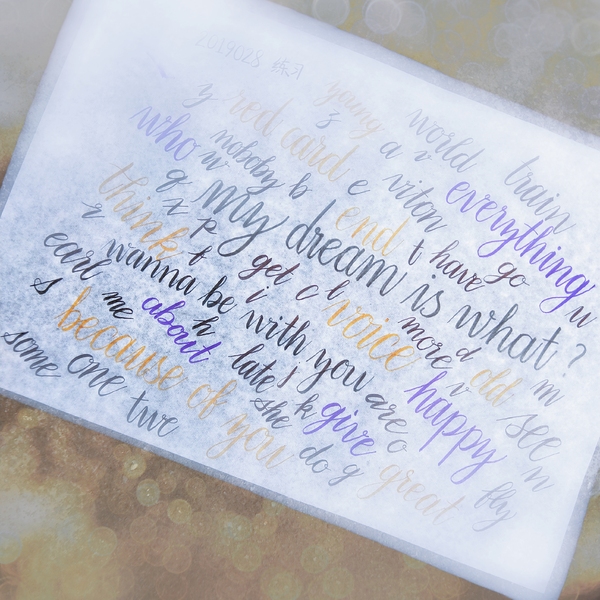 2019028 练习
young world train
y red card z a v everything
who nobody b e viton
w my dream is what?
think g z p end t have go w
r t get c l voice more d old m
earl wanna be with you
s me about h i late j are v happy see
because of you she k give o n
some one twe do g great fly